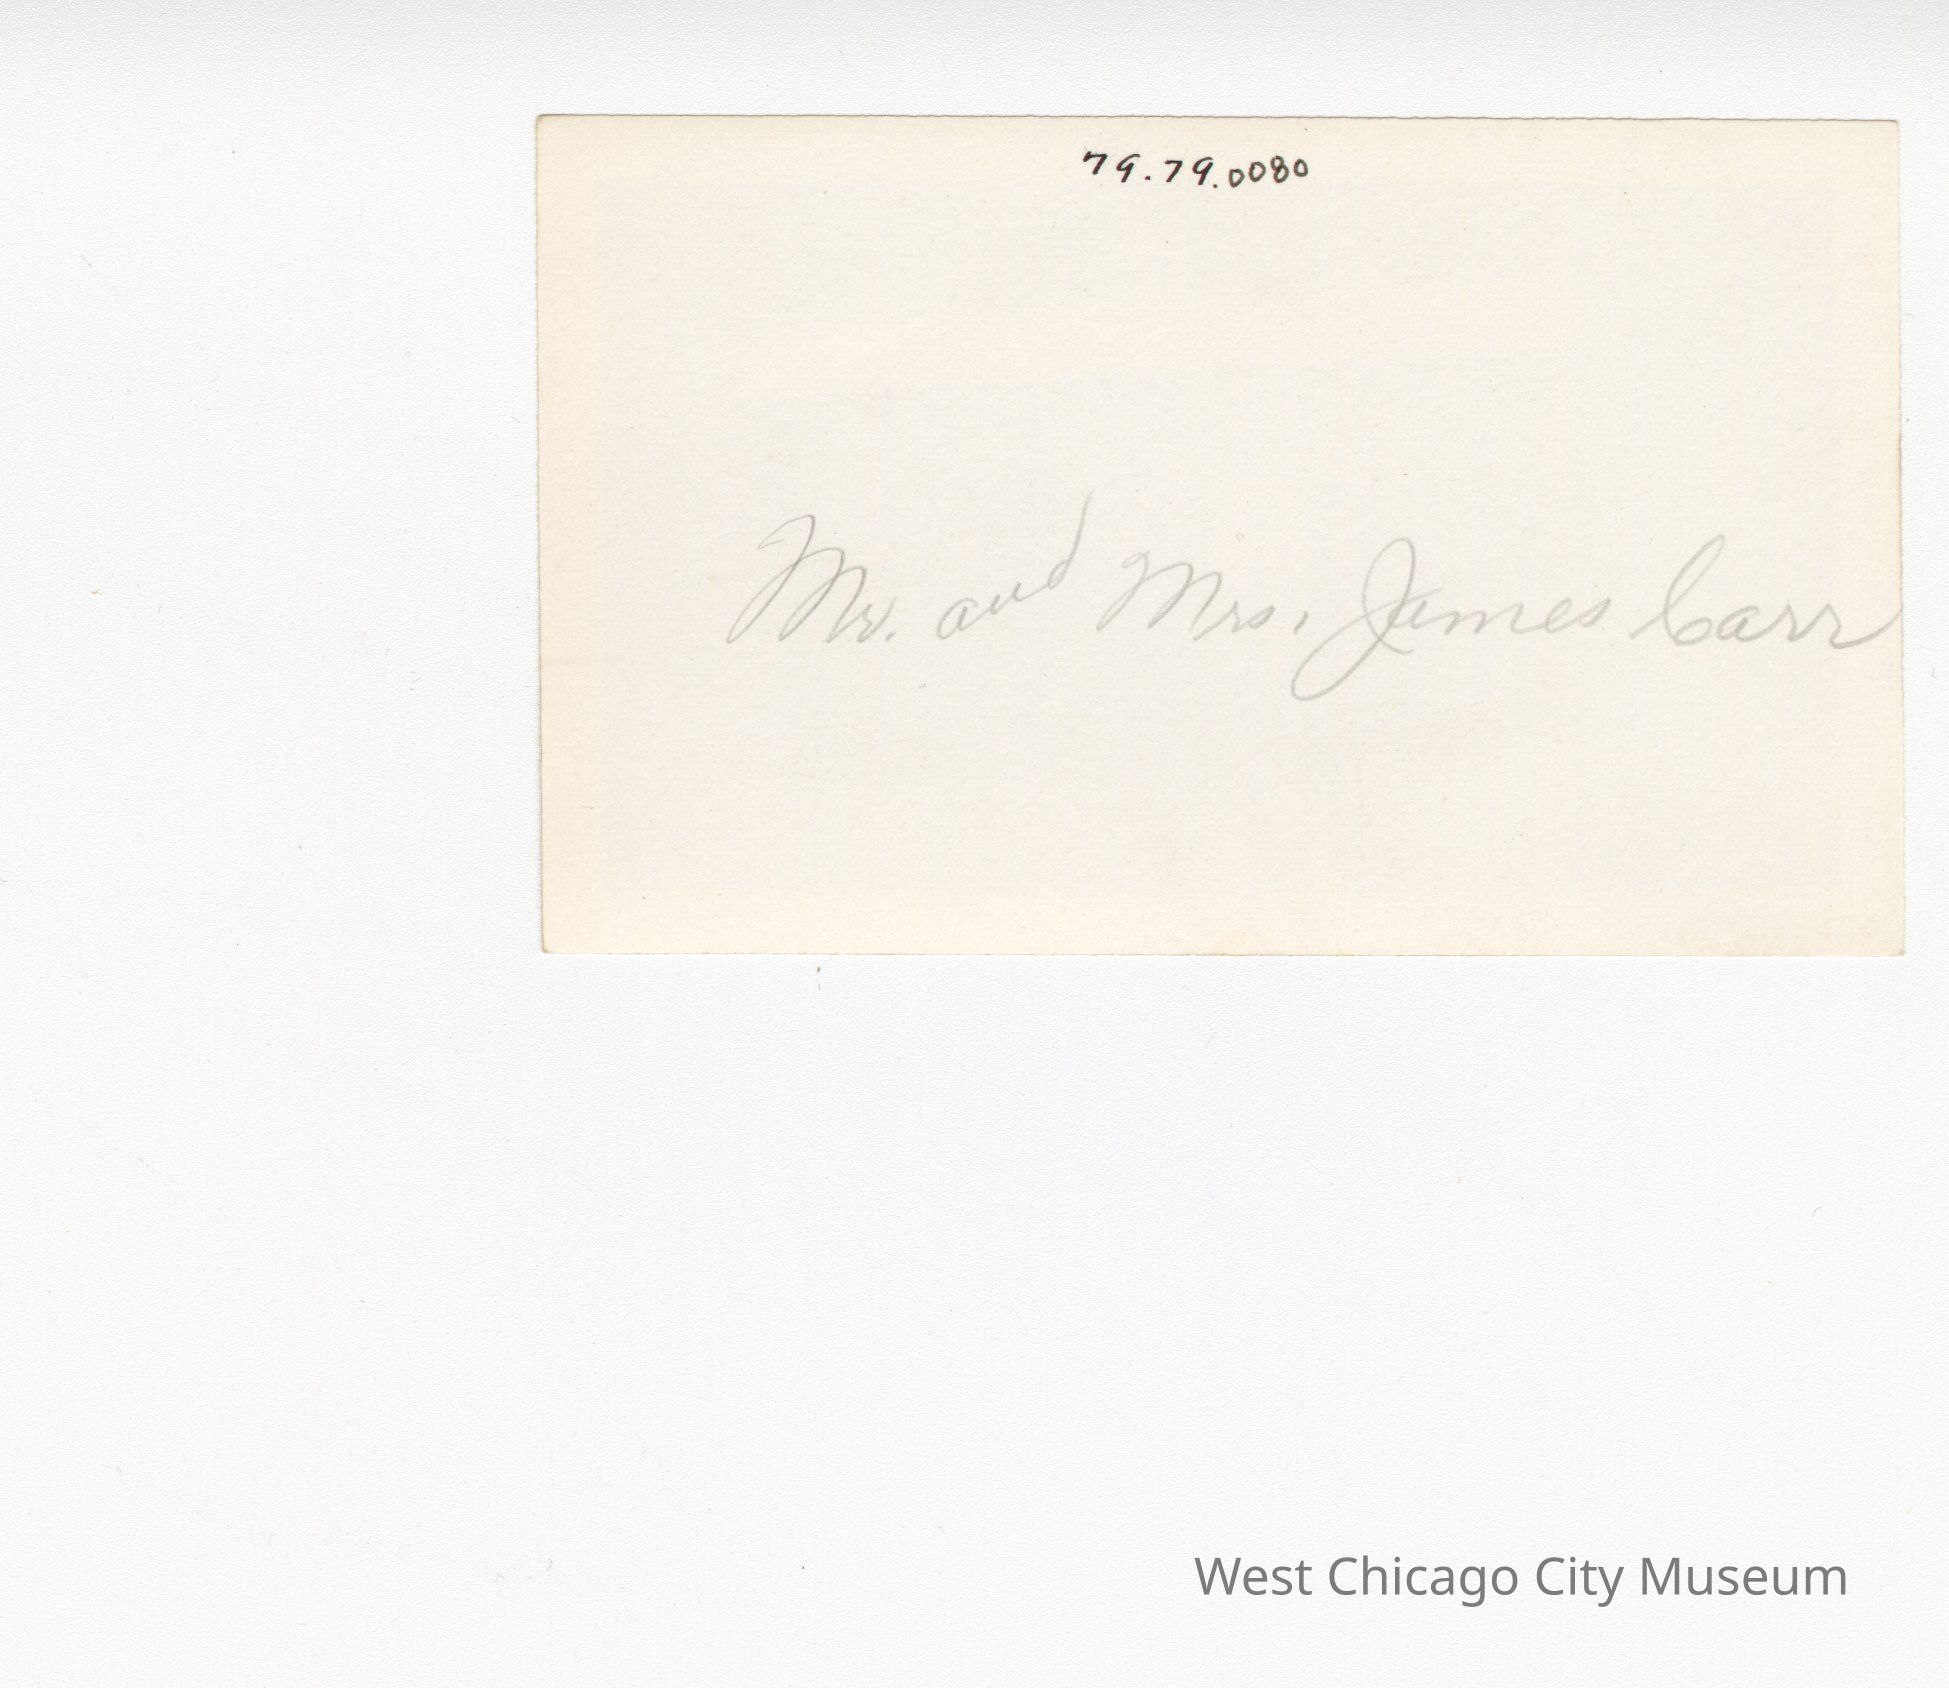 79.79.0080
Mr. and Mrs. James Carr
West Chicago City Museum